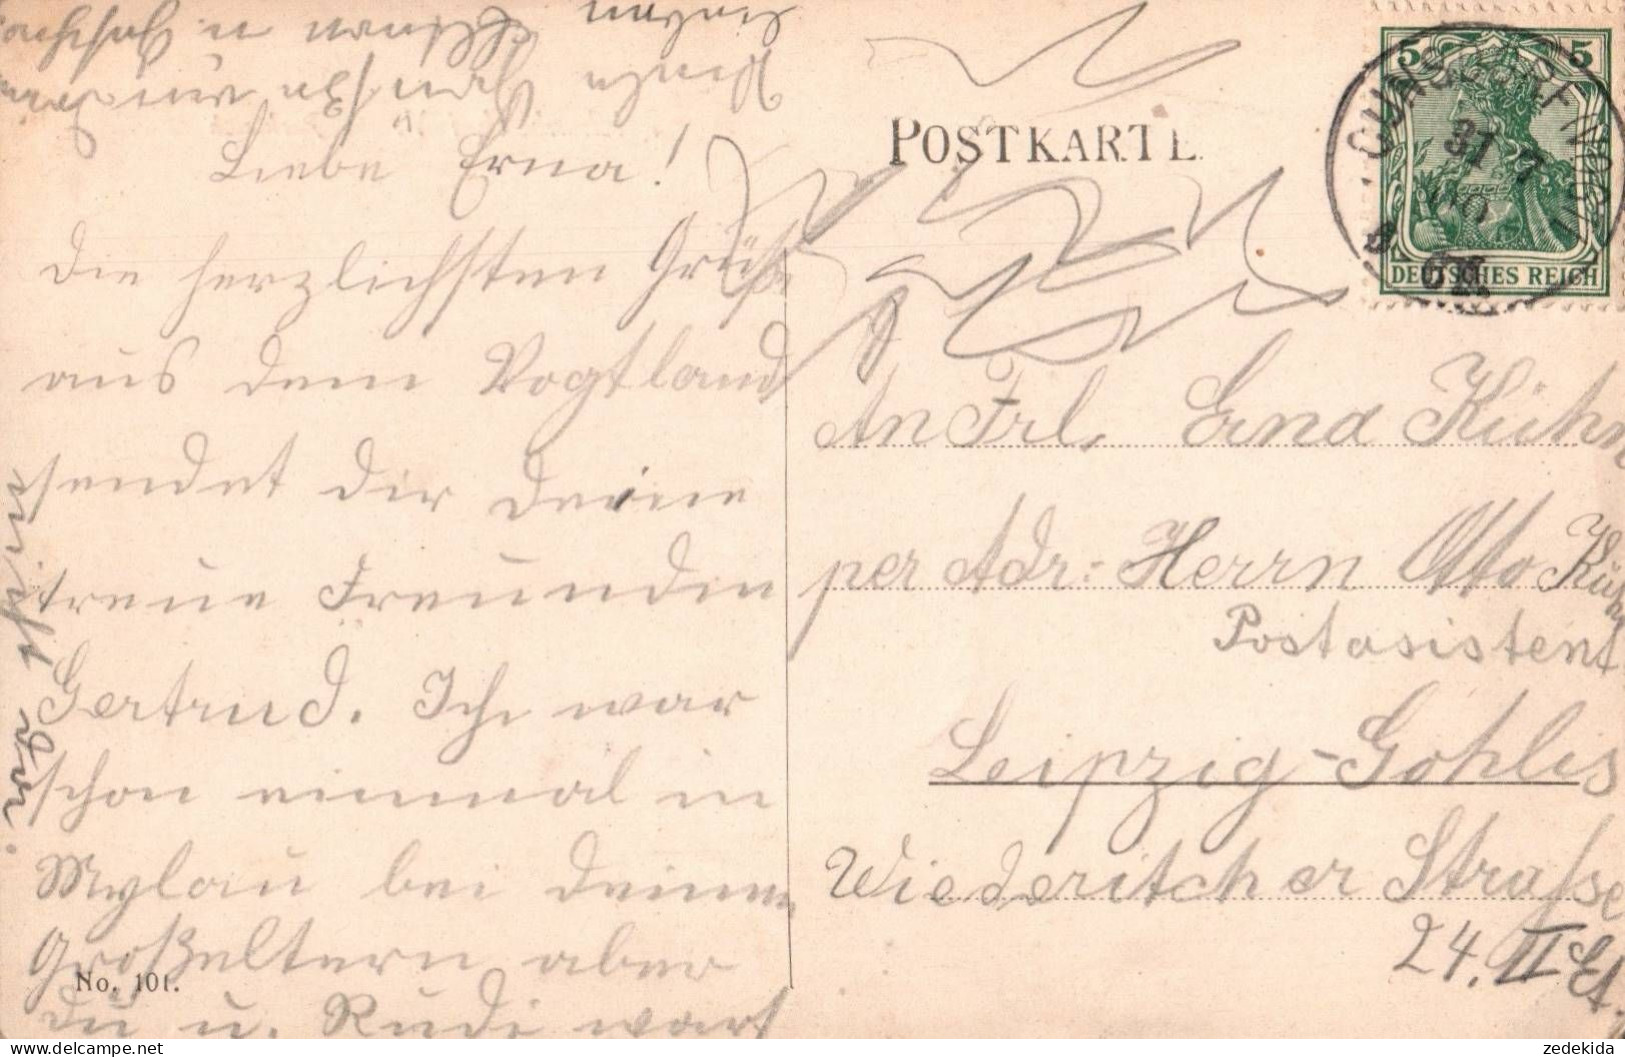 Liebe Erna!
Die herzlichsten Grüße
aus dem Vogtland
sendet dir deine
treue Freundin
Gertrud. Ich war
schon einmal in
Mylau bei deinen
Großeltern aber
du u. Rudi wart
nicht da.
No. 101.
POSTKARTE
5 5
DEUTSCHES REICH
31 7
An Frl. Erna Kühn
per Adr: Herrn Otto Kühn
Postasistent
Leipzig-Gohlis
Wiederitcher Strasse
24. II Et.
zedekida